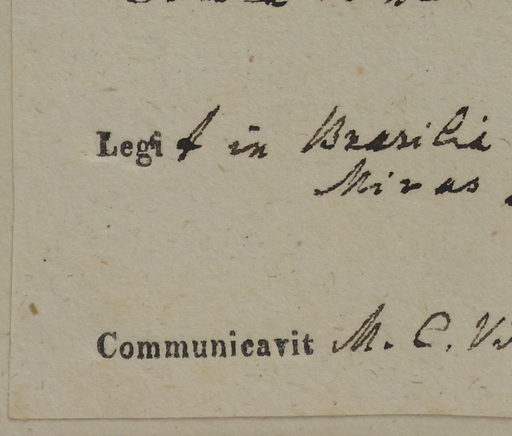 Legit in Brasilia
Minas
Communicavit M. C. V